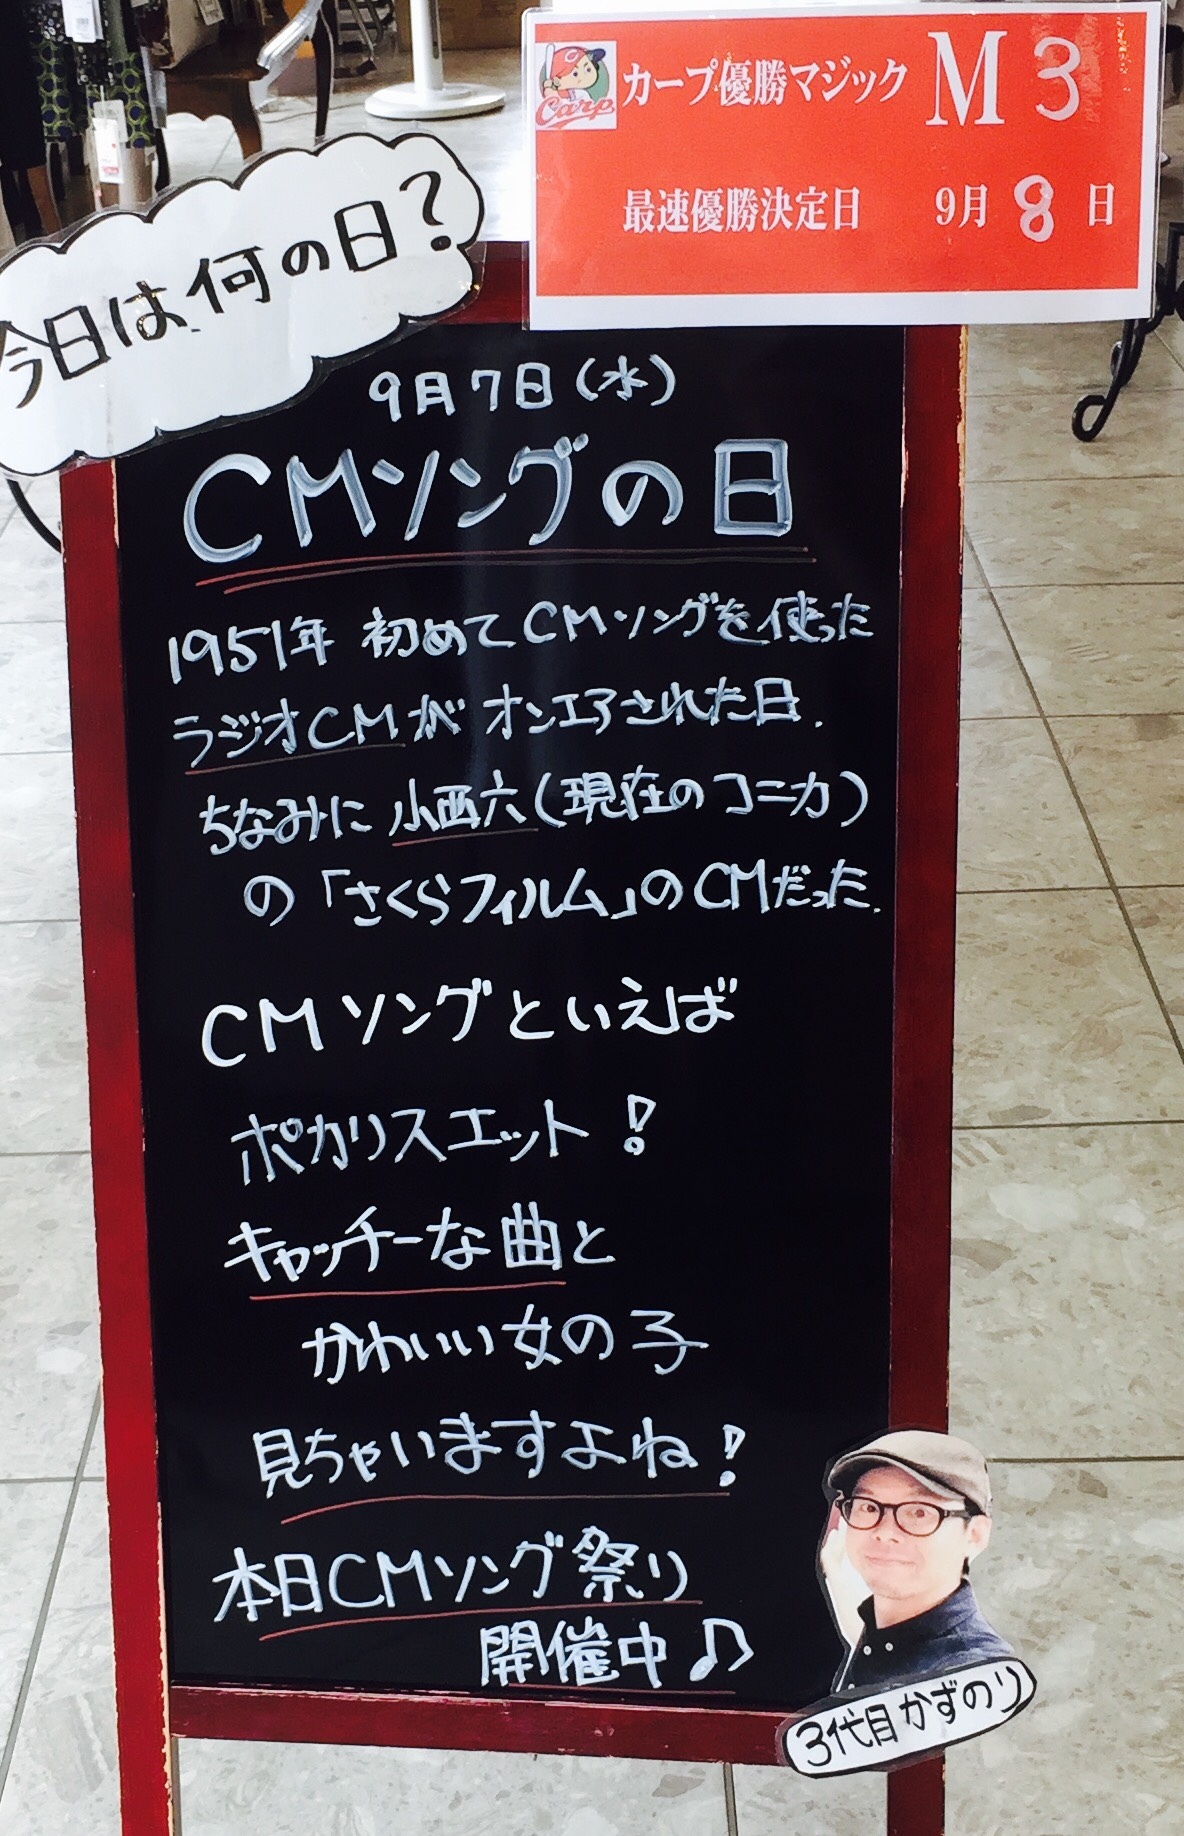 Carp
カープ優勝マジック M 3
最速優勝決定日 9月 8 日
今日は何の日?
9月7日(水)
CMソングの日
1951年 初めてCMソングを使った
ラジオCMが オンエアされた日.
ちなみに 小西六(現在のコニカ)
の「さくらフィルム」のCMだった.
CMソングといえば
ポカリスエット!
キャッチーな曲と
かわいい女の子
見ちゃいますよね!
本日CMソング祭り
開催中♫
3代目かずのり